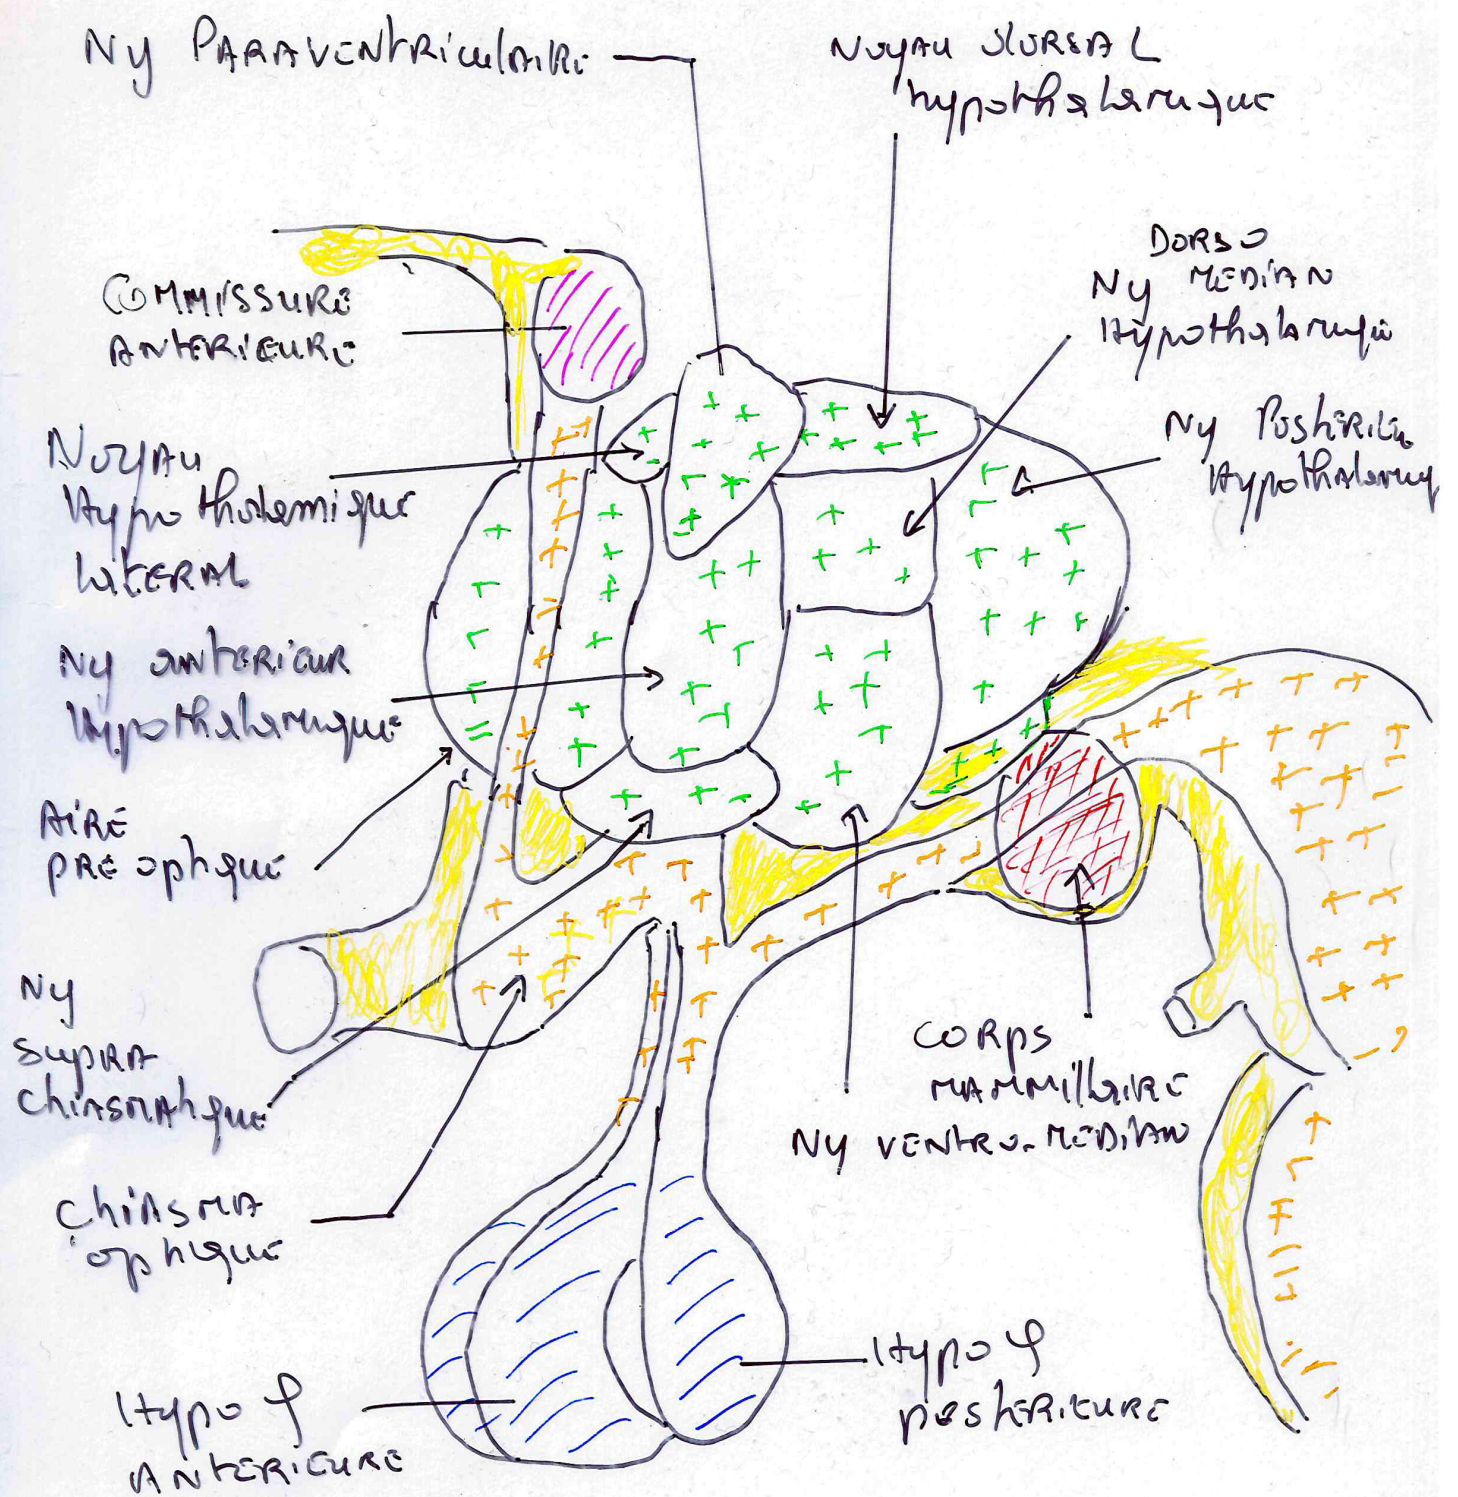 Ny PARAVENTRICULAIRE
NOYAU DORSAL
hypothalamique
COMMISSURE
ANTERIEURE
DORSO
Ny MEDIAN
Hypothalamique
Ny POSTERIEU
Hypothalamiq
NOYAU
Hypothalamique
LATERAL
Ny ANTERIEUR
Hypothalamique
AIRE
PRE optique
Ny
SUPRA
CHIASMATIQUE
CORPS
MAMMILLAIRE
Ny VENTRO-MEDIAN
CHIASMA
OPTIQUE
Hypo φ
POSTERIEURE
Hypo φ
ANTERIEURE